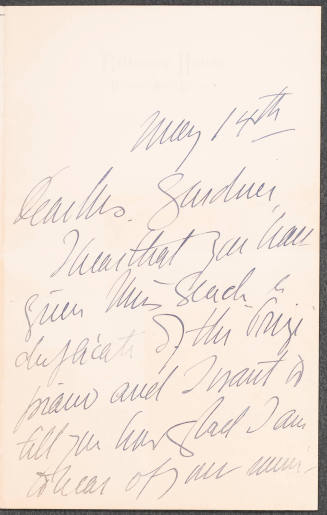 May 14th
Dear Mrs. Gardner,
I hear that you have
given Miss Beach a
duplicate of the Prize
piano and I want to
tell you how glad I am
to hear of your muni-